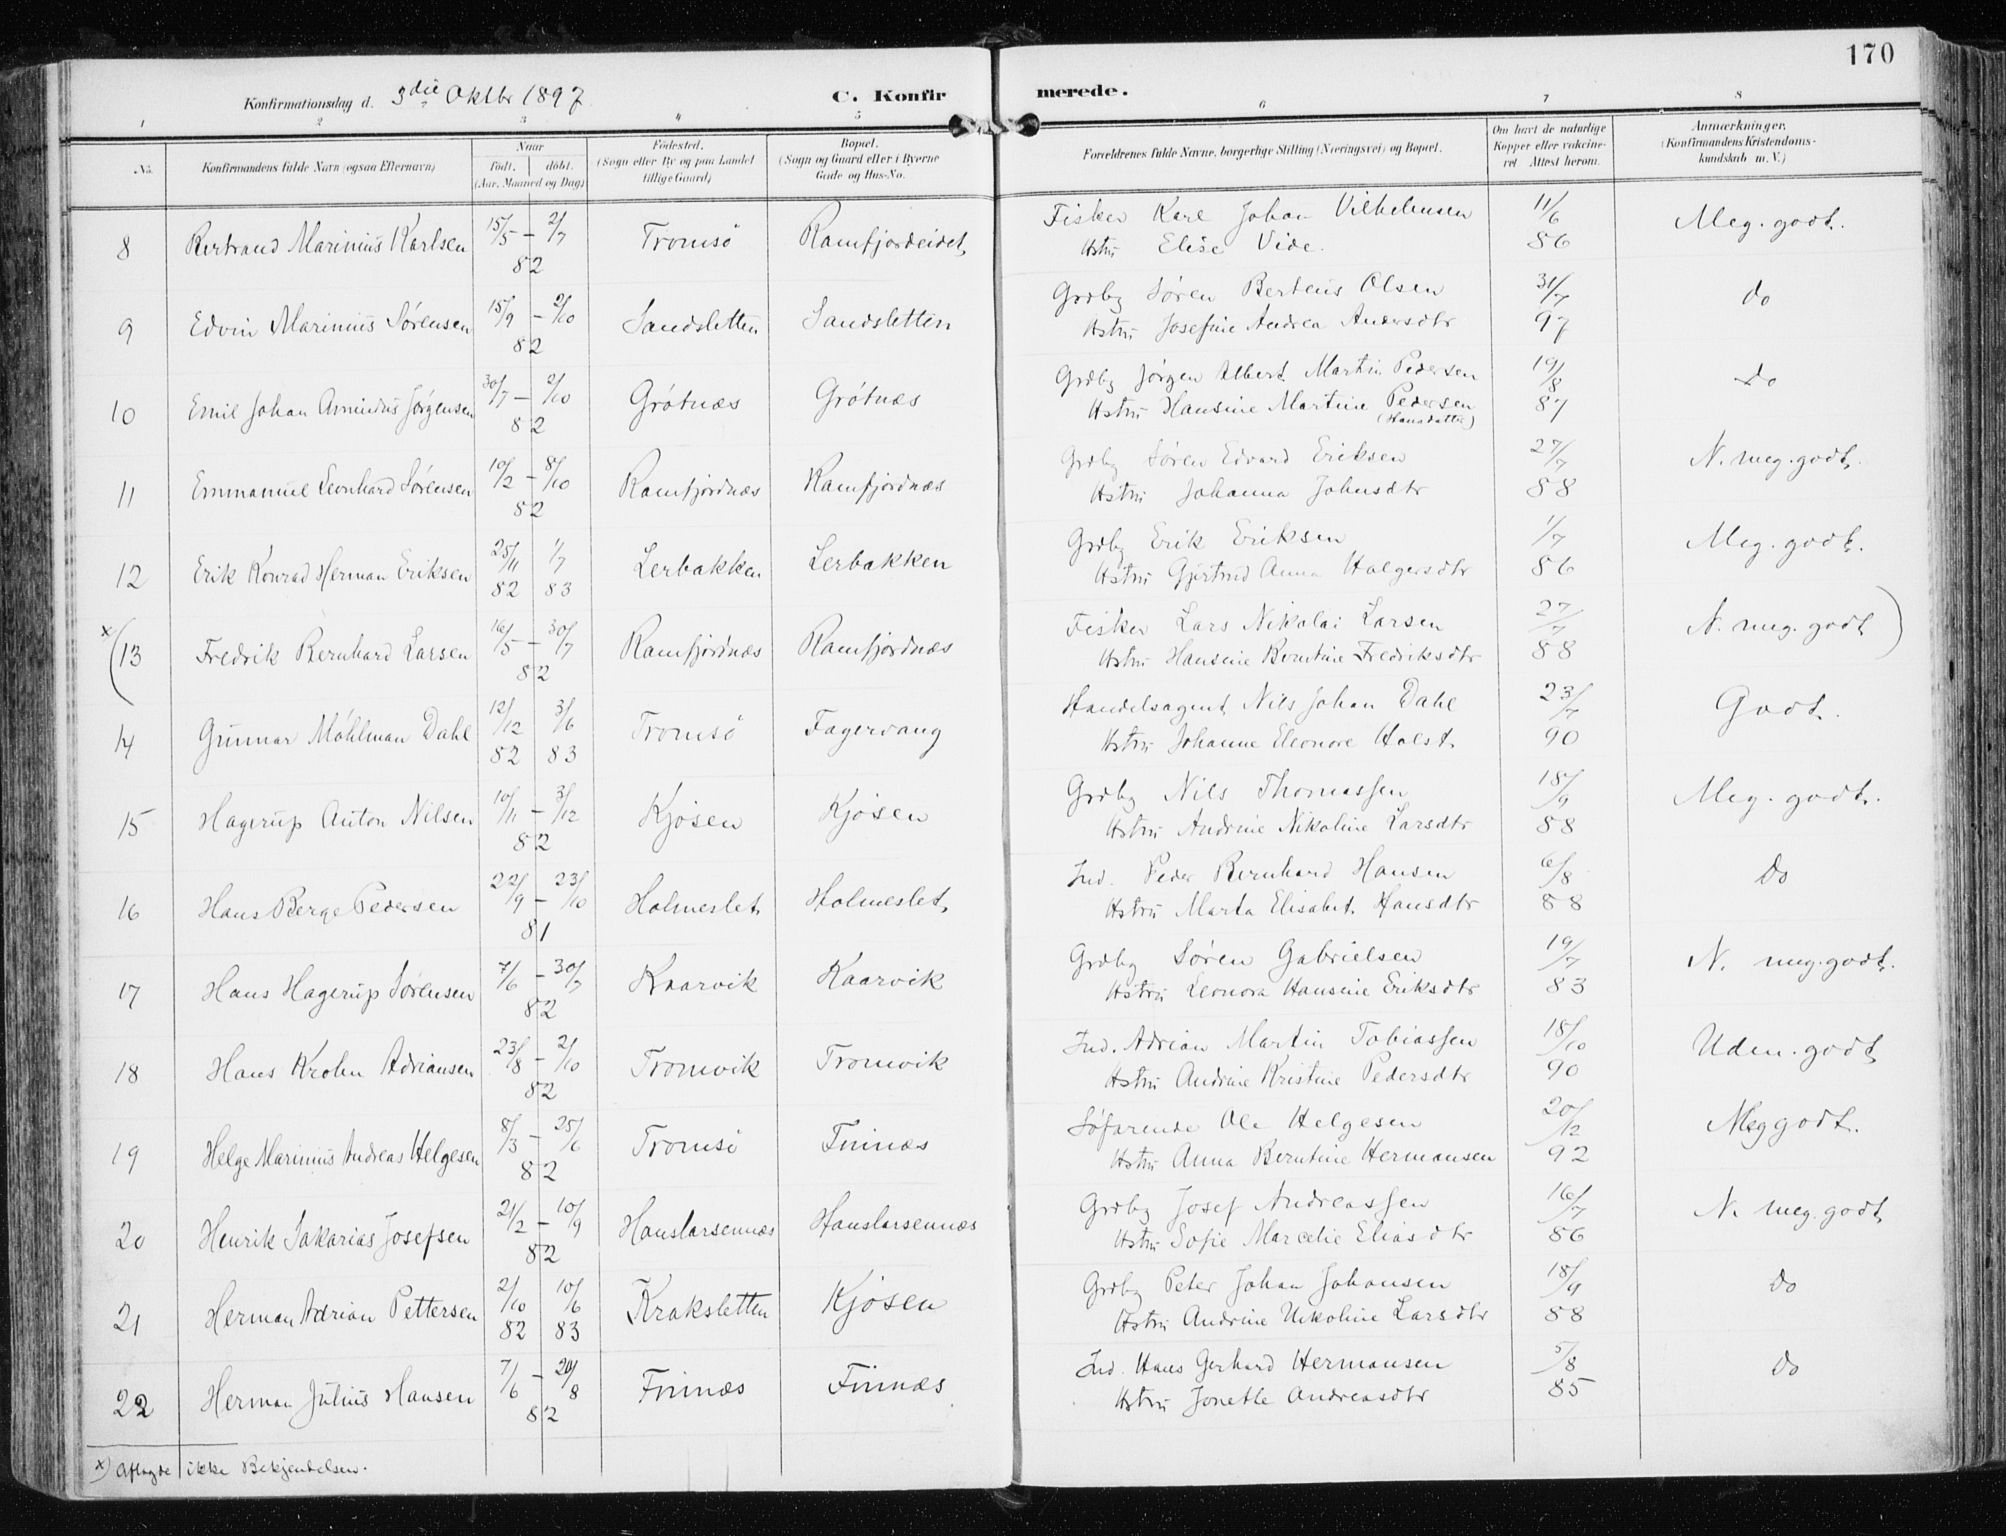 170
Konfirmationsdag d. 3die Oktbr 1897
C. Konfirmerede.
1 2 3 4 5 6 7 8
No. Konfirmandens fulde Navn (ogsaa Efternavn) Naar født. døbt. (Aar, Maaned og Dag) Fødested. (Sogn eller By og paa Landet tillige Gaard) Bopæl. (Sogn og Gaard eller i Byerne Gade og Hus-No. Forældrenes fulde Navne, borgerlige Stilling (Næringsvei) og Bopæl. Om havt de naturlige Kopper eller vakcineret. Attest herom. Anmærkninger. (Konfirmandens Kristendomskundskab m. V.)
8 Bertrand Marinius Karlsen 15/5 – 2/7 82 Tromsø Ramfjordeidet Fisker Karl Johan Vilhelmsen 11/6 86 Meg. godt.
Hstru Elise Vide.
9 Edvin Marinius Sørensen 15/9 – 2/10 82 Sandsletten Sandsletten Grdbg Søren Berteus Olsen 31/7 97 do
Hstru Josefine Andrea Andersdtr
10 Emil Johan Amindus Jørgensen 30/7 – 2/10 82 Grøtnæs Grøtnæs Grdbg Jørgen Albert Martin Pedersen 19/8 87 do
Hstru Hansine Martine Pedersen
(Hansdatter)
11 Emmanuel Leonhard Sørensen 10/2 – 8/10 82 Ramfjordnæs Ramfjordnæs Grdbg Søren Edvard Eriksen 27/7 88 N. meg. godt.
Hstru Johanna Johnsdtr
12 Erik Konrad Herman Eriksen 25/11 82 1/7 83 Lerbakken Lerbakken Grdbg Erik Eriksen 1/7 86 Meg. godt.
Hstru Gjertrud Anna Holgersdtr
x (13 Fredrik Bernhard Larsen 16/5 – 30/7 82 Ramfjordnæs Ramfjordnæs Fisker Lars Nikolai Larsen 27/7 88 N. meg. godt)
Hstru Hansine Berntine Fredriksdtr
14 Gunnar Møhlman Dahl 12/12 82 3/6 83 Tromsø Fagervang Handelsagent Nils Johan Dahl 23/7 90 Godt.
Hstru Johanne Eleonore Holst.
15 Hagerup Anton Nilsen 10/11 – 3/12 82 Kjøsen Kjøsen Grdbg Nils Thomassen 18/9 88 Meg. godt.
Hstru Andrine Nikoline Larsdtr
16 Hans Berge Pedersen 22/9 – 23/10 81 Holmeslet Holmeslet Ind. Peder Bernhard Hansen 6/8 88 Do
Hstru Marta Elisabet Hansdtr
17 Hans Hagerup Sørensen 7/6 – 30/7 82 Kaarvik Kaarvik Grdbg Søren Gabrielsen 19/7 83 N. meg. godt.
Hstru Leonora Hansine Eriksdtr
18 Hans Krohn Adriansen 23/8 – 2/10 82 Tromvik Tromvik Ind. Adrian Martin Tobiassen 18/10 90 Uden. godt
Hstru Andrine Kristine Pedersdtr
19 Helge Marinius Andreas Helgesen 8/3 – 25/6 82 Tromsø Finnæs Søfarende Ole Helgesen 20/12 92 Meg godt.
Hstru Anna Berntine Hermansen
20 Henrik Sakarias Josefsen 21/2 – 10/9 82 Hanslarsennæs Hanslarsennæs Grdbg Josef Andreassen 16/7 86 N. meg. godt
Hstru Sofie Marcelie Eliasdtr
21 Herman Adrian Pettersen 2/10 82 10/6 83 Kraksletten Kjøsen Grdbg Peter Johan Johansen 18/9 88 do
Hstru Andrine Nikoline Larsdtr
22 Herman Julius Hansen 7/6 – 20/8 82 Finnæs Finnæs Ind. Hans Gerhard Hermansen 5/8 85 do
Hstru Jonette Andreasdtr
x) Aflagde ikke Bekjendelsen.